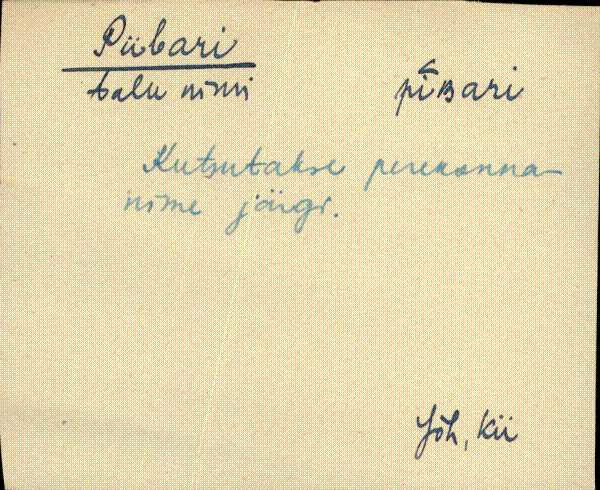 Piibari
talu nimi
pìʙari
Kutsutakse perekonna-
nime järgi.
Jõh, Kii